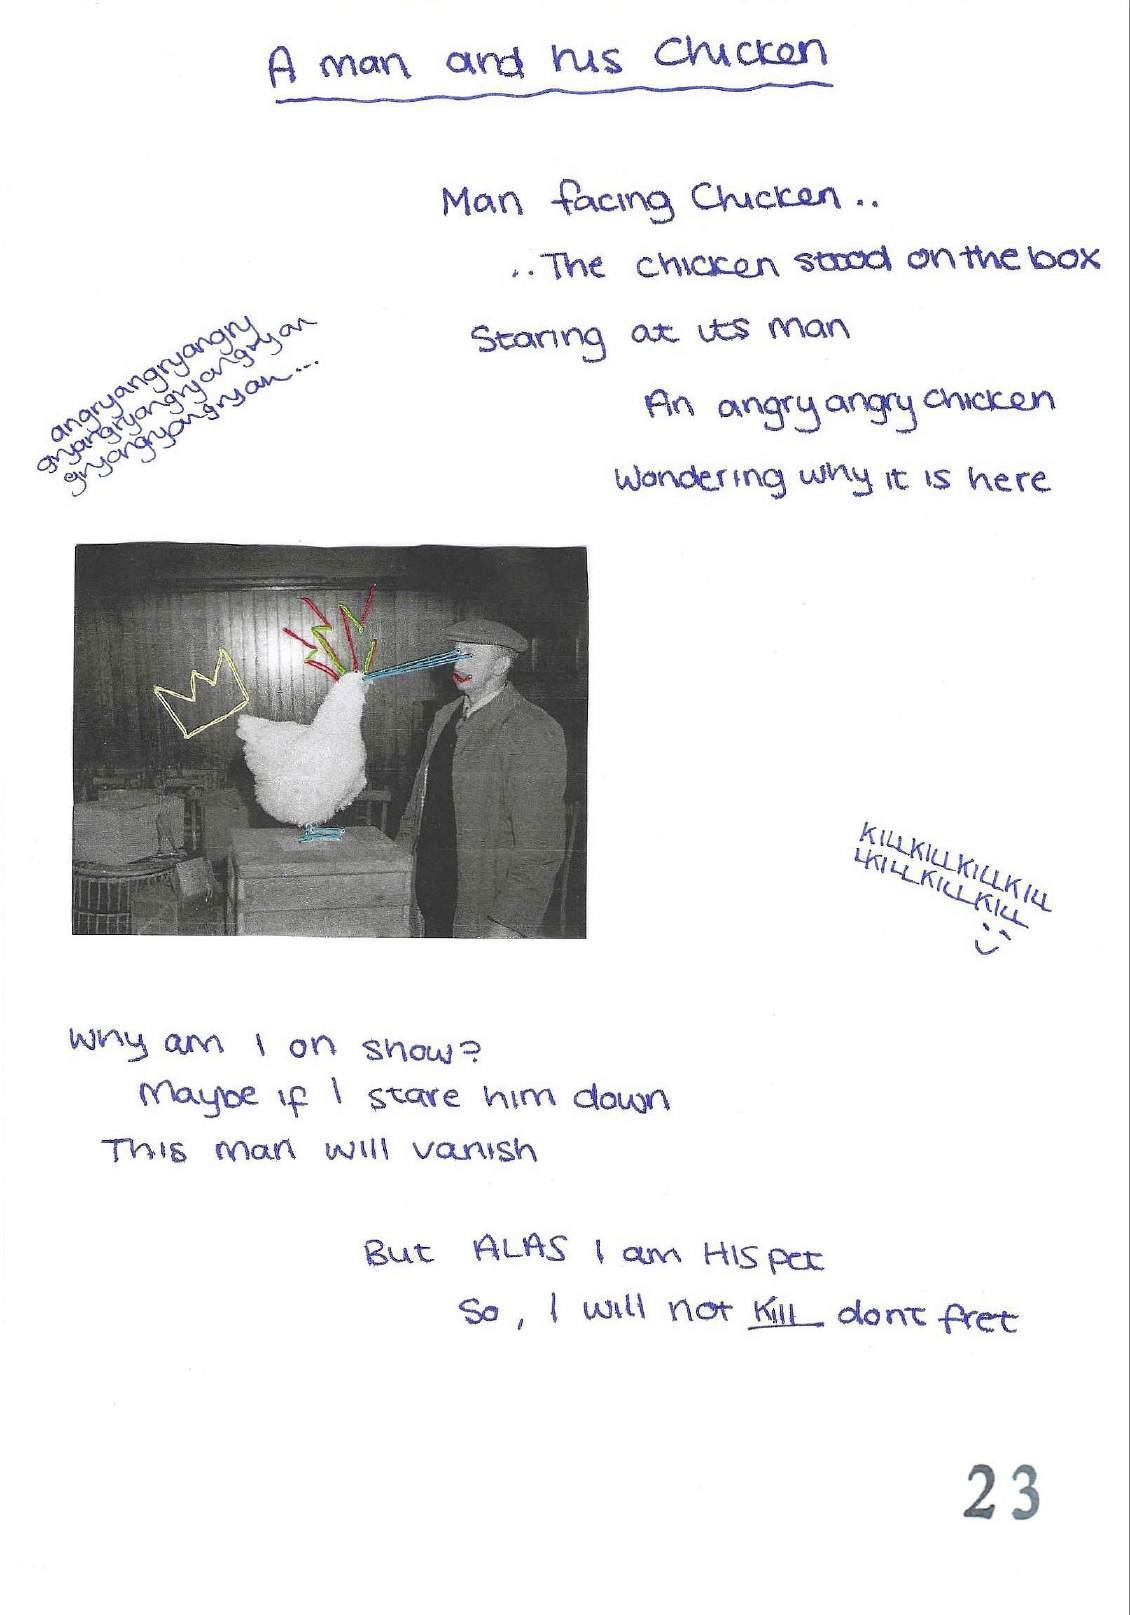 A man and his Chicken
Man facing Chicken..
..The chicken stood on the box
Staring at its man
An angry angry chicken
Wondering why it is here
angryangryangry
gryangryangryangryan
gryangryangryan...
KILLKILLKILLKILL
LKILLKILLKILL
Why am I on show?
Maybe if I stare him down
This man will vanish
But ALAS I am HIS pet
So, I will not Kill dont fret
23